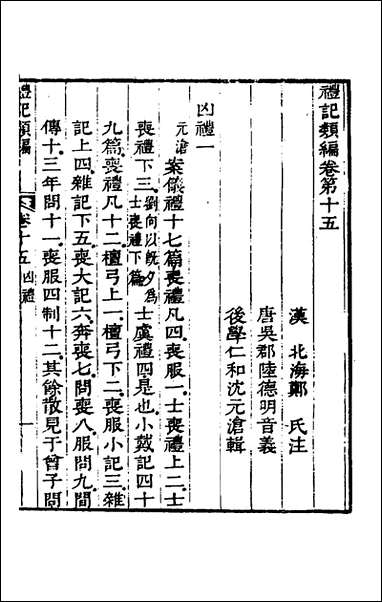 禮記類編卷第十五
漢 北海鄭 氏注
唐吳郡陸德明音義
後學仁和沈元滄輯
凶禮一
元滄案儀禮十七篇喪禮凡四喪服一士喪禮上二士
喪禮下三劉向以既夕爲士喪禮下篇士虞禮四是也小戴記四十
九篇喪禮凡十二檀弓上一檀弓下二喪服小記三雜
記上四雜記下五喪大記六奔喪七問喪八服問九間
傳十三年問十一喪服四制十二其餘散見于曾子問
禮記類編 卷十五 凶禮 一